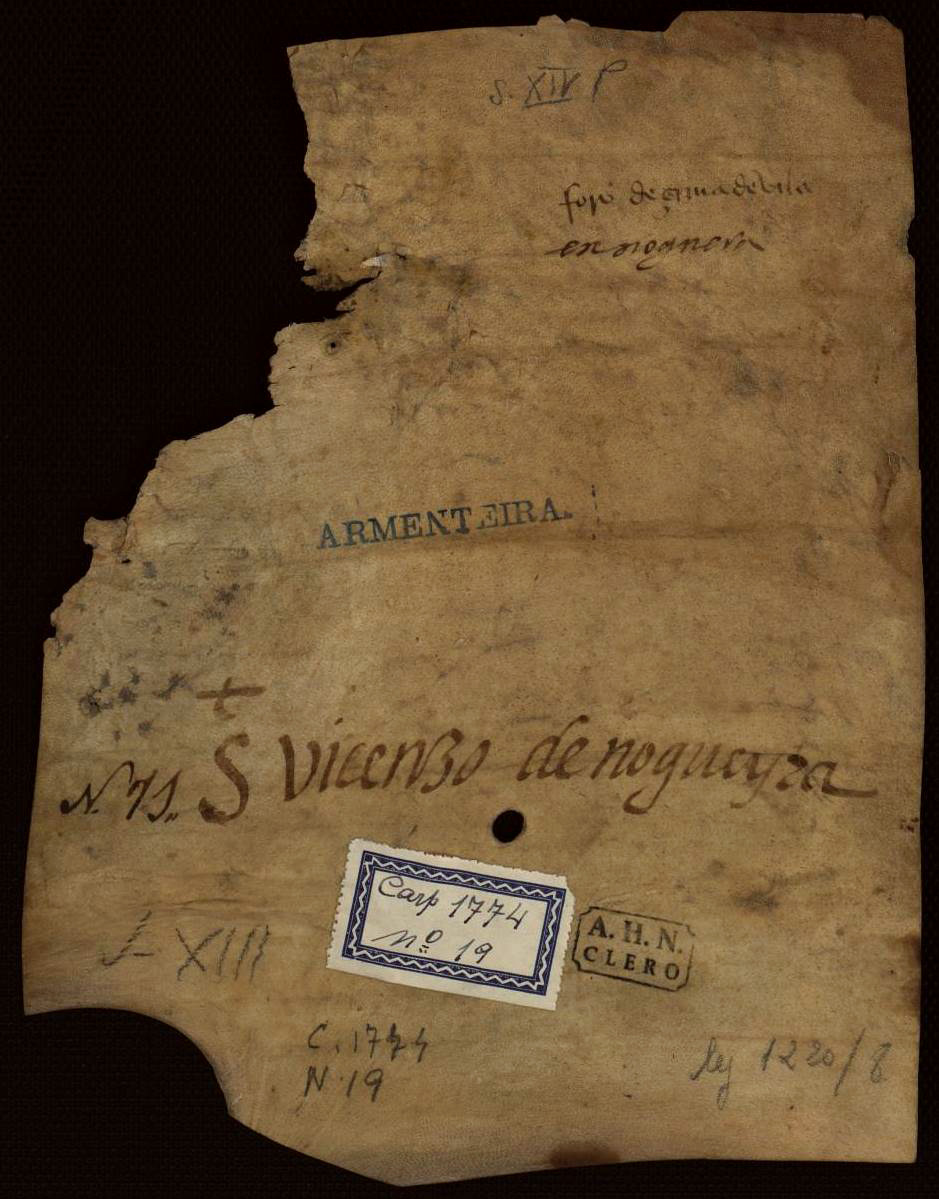 S. XIV P
foro de çima de vila
en noguera
ARMENTEIRA.
N. 71. S Vicenzo de nogueyra
Carp 1774
nº 19
A. H. N.
CLERO
S-XIII
C. 1774
N. 19
leg 1220/8